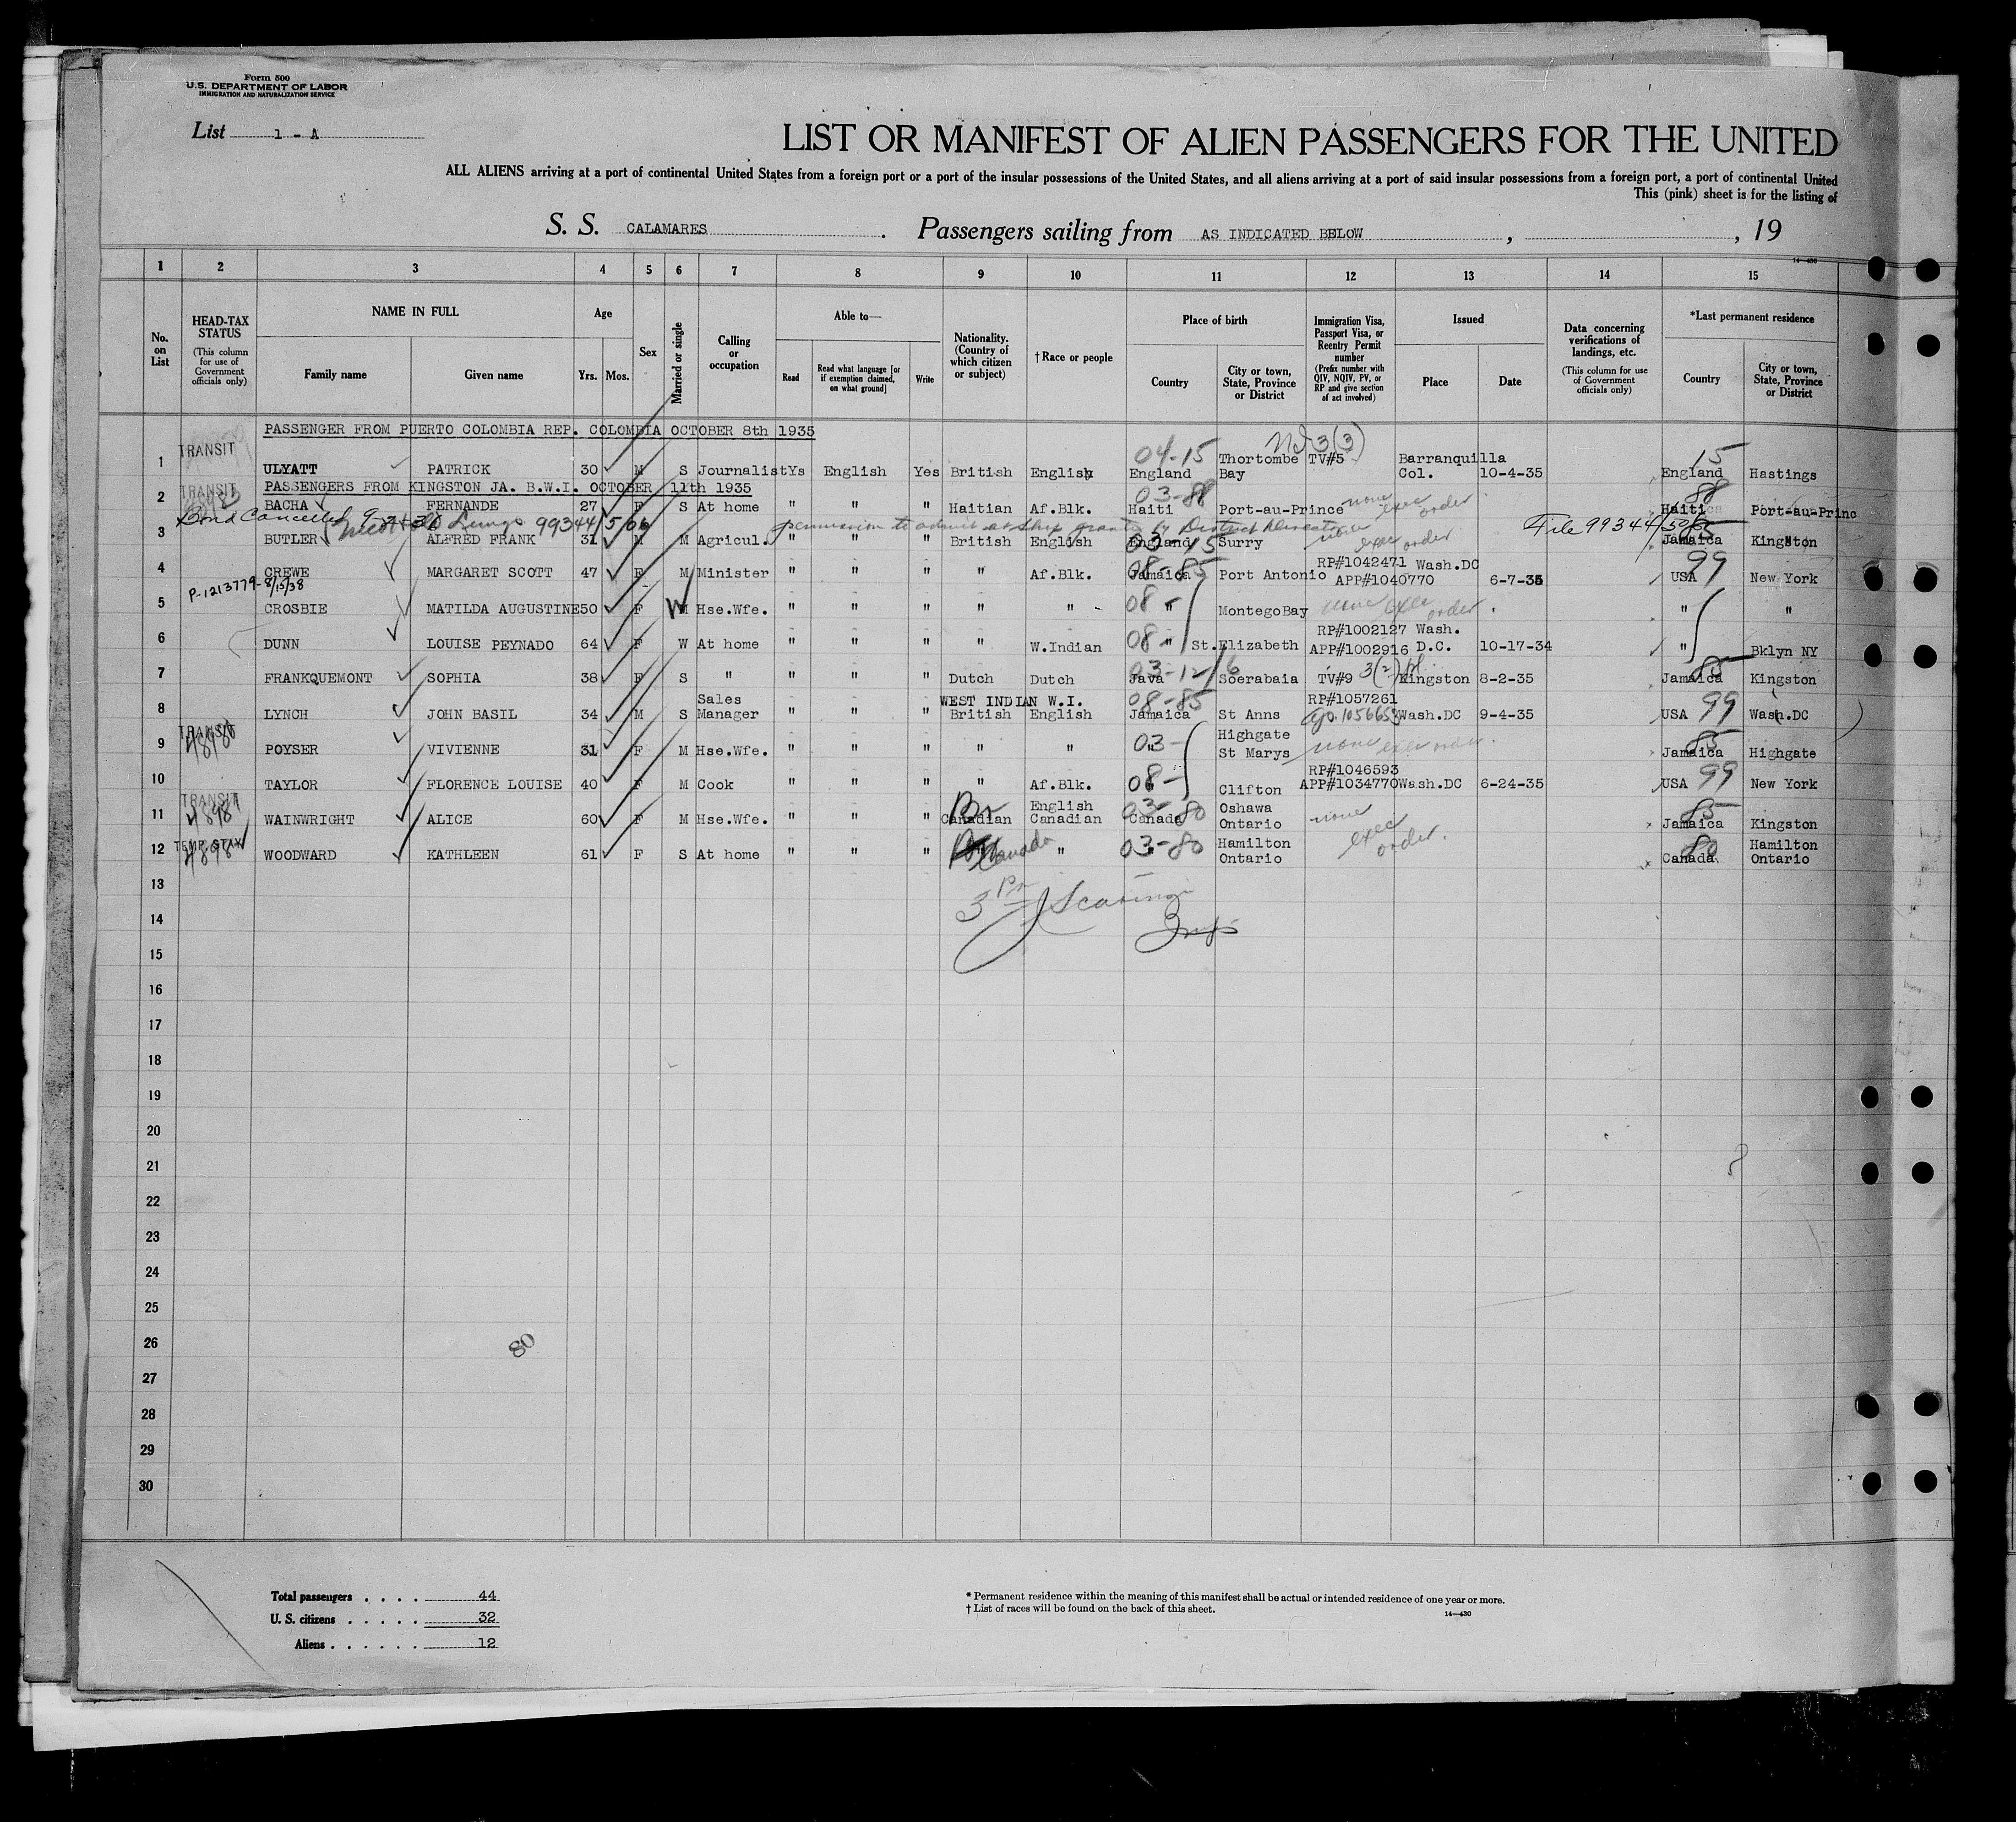 Form 500
U.S. DEPARTMENT OF LABOR
IMMIGRATION AND NATURALIZATION SERVICE
List 1 - A
LIST OR MANIFEST OF ALIEN PASSENGERS FOR THE UNITED
ALL ALIENS arriving at a port of continental United States from a foreign port or a port of the insular possessions of the United States, and all aliens arriving at a port of said insular possessions from a foreign port, a port of continental United
This (pink) sheet is for the listing of
S. S. CALAMARES. Passengers sailing from AS INDICATED BELOW, , 19
14—430
1 2 3 4 5 6 7 8 9 10 11 12 13 14 15
No. on List
HEAD-TAX STATUS (This column for use of Government officials only)
NAME IN FULL
Family name Given name
Age
Yrs. Mos.
Sex
Married or single
Calling or occupation
Able to—
Read
Read what language [or if exemption claimed, on what ground]
Write
Nationality. (Country of which citizen or subject)
†Race or people
Place of birth
Country
City or town, State, Province or District
Immigration Visa, Passport Visa, or Reentry Permit number (Prefix number with QIV, NQIV, PV, or RP and give section of act involved)
Issued
Place Date
Data concerning verifications of landings, etc. (This column for use of Government officials only)
*Last permanent residence
Country
City or town, State, Province or District
PASSENGER FROM PUERTO COLOMBIA REP. COLOMBIA OCTOBER 8th 1935
1 TRANSIT ULYATT PATRICK 30 M S Journalist Ys English Yes British English 04-15 England Thortombe Bay TV#5 3(3) Barranquilla Col. 10-4-35 15 England Hastings
PASSENGERS FROM KINGSTON JA. B.W.I. OCTOBER 11th 1935
2 TRANSIT BACHA FERNANDE 27 F S At home " " " Haitian Af.Blk. 03-88 Haiti Port-au-Prince none exec order 88 Haiti Port-au-Princ
Bond Cancelled 99344/506 permission to admit at ship granted by District Director File 99344/506
3 BUTLER ALFRED FRANK 31 M M Agricul. " " " British English 03-15 England Surry none exec order 85 Jamaica Kingston
4 CREWE MARGARET SCOTT 47 F M Minister " " " " Af.Blk. 08-85 Jamaica Port Antonio RP#1042471 APP#1040770 Wash.DC 6-7-35 99 USA New York
P-1213779-8/15/38
5 CROSBIE MATILDA AUGUSTINE 50 F W Hse.Wfe. " " " " " 08- " MontegoBay none exec order. " "
6 DUNN LOUISE PEYNADO 64 F W At home " " " " W.Indian 08- " St.Elizabeth RP#1002127 APP#1002916 Wash. D.C. 10-17-34 " Bklyn NY
7 FRANKQUEMONT SOPHIA 38 F S " " " " Dutch Dutch 03-12-16 Java Soerabaia TV#9 3(2) Kingston 8-2-35 85 Jamaica Kingston
8 LYNCH JOHN BASIL 34 M S Sales Manager " " " WEST INDIAN W.I. British English 08-85 Jamaica St Anns RP#1057261 Wash.DC 9-4-35 USA 99 Wash.DC
9 TRANSIT POYSER VIVIENNE 31 F M Hse.Wfe. " " " " " 03- " Highgate St Marys none exec order. 85 Jamaica Highgate
10 TAYLOR FLORENCE LOUISE 40 F M Cook " " " " Af.Blk. 08- Clifton RP#1046593 APP#1034770 Wash.DC 6-24-35 USA 99 New York
11 TRANSIT WAINWRIGHT ALICE 60 F M Hse.Wfe. " " " Br Canadian English Canadian 03-80 Canada Oshawa Ontario none 85 Jamaica Kingston
12 TEMP. STAY WOODWARD KATHLEEN 61 F S At home " " " Canada " 03-80 Hamilton Ontario exec order. 80 Canada Hamilton Ontario
13
14
15
16
17
18
19
20
21
22
23
24
25
26 80
27
28
29
30
Total passengers . . . . 44
U. S. citizens . . . . . 32
Aliens . . . . . . 12
* Permanent residence within the meaning of this manifest shall be actual or intended residence of one year or more.
† List of races will be found on the back of this sheet.
14—430